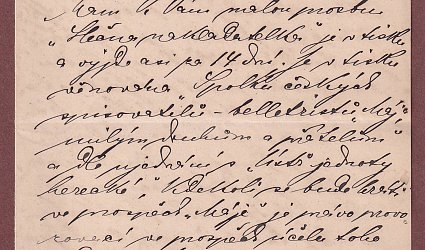 Mám k Vám malou prosbu
„Slečna nakladatelka" je v tisku
a vyjde asi za 14 dní. Je v tisku
věnována „Spolku českých
spisovatelů - belletristů „Máj",
milým druhům a přátelům"
a dle ujednání s „Ústř. jednoty
herecké," kdekoli se bude hráti
ve prospěch „Máje" je právo provo-
zovací ve prospěch účelu toho